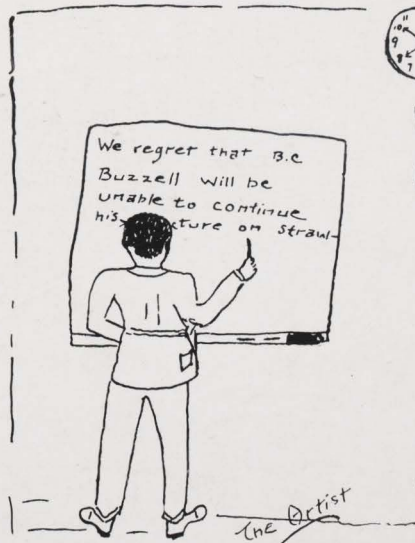 We regret that B.C
Buzzell will be
unable to continue
his cture on straw-
11
10
9
8
7
The Artist